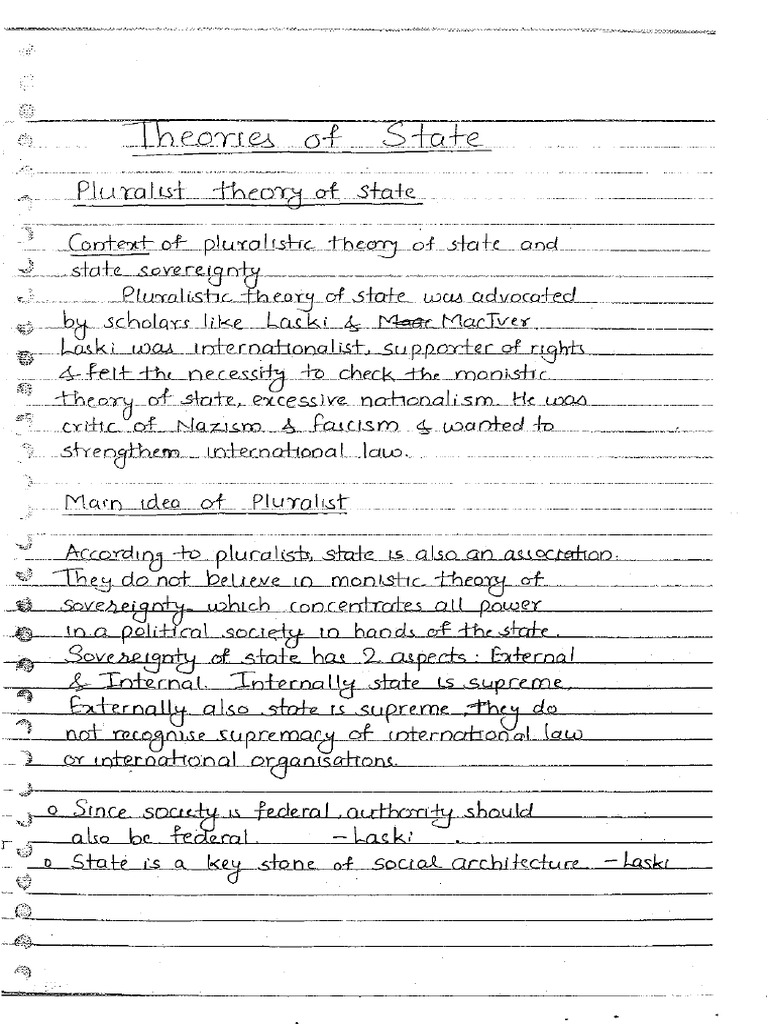 Theories of State
Pluralist theory of state
Context of pluralistic theory of state and
state sovereignty
Pluralistic theory of state was advocated
by scholars like Laski & MacIver.
Laski was internationalist, supporter of rights
& felt the necessity to check the monistic
theory of state, excessive nationalism. He was
critic of Nazism & fascism & wanted to
strengthem international law.
Main idea of Pluralist
According to pluralists, state is also an association.
They do not believe in monistic theory of
sovereignty which concentrates all power
in a political society in hands of the state.
Sovereignty of state has 2 aspects: External
& Internal. Internally state is supreme.
Externally also state is supreme, they do
not recognise supremacy of international law
or international organisations.
o Since society is federal, authority should
also be federal. - Laski
o State is a key stone of social architecture - Laski